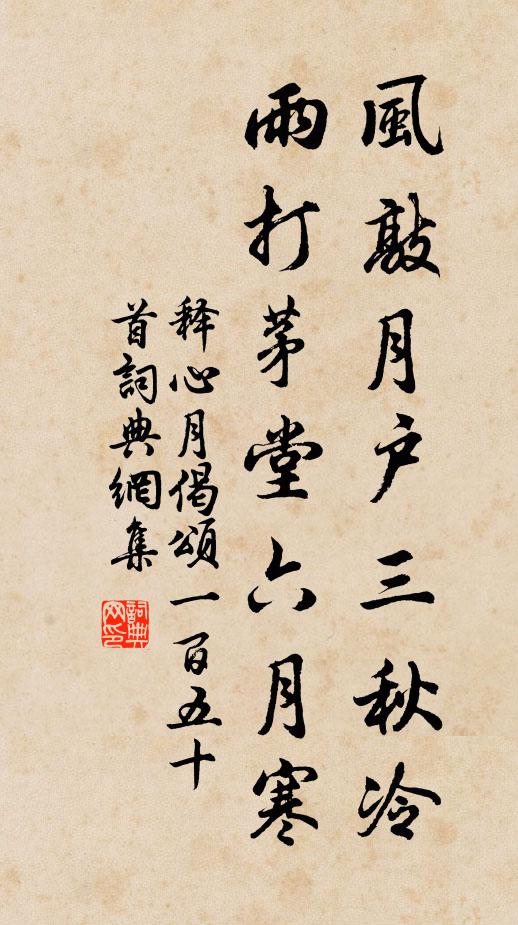 風敲月户三秋冷
雨打茅堂六月寒
释心月偈頌一百五十
首詞典網集
詞典网印